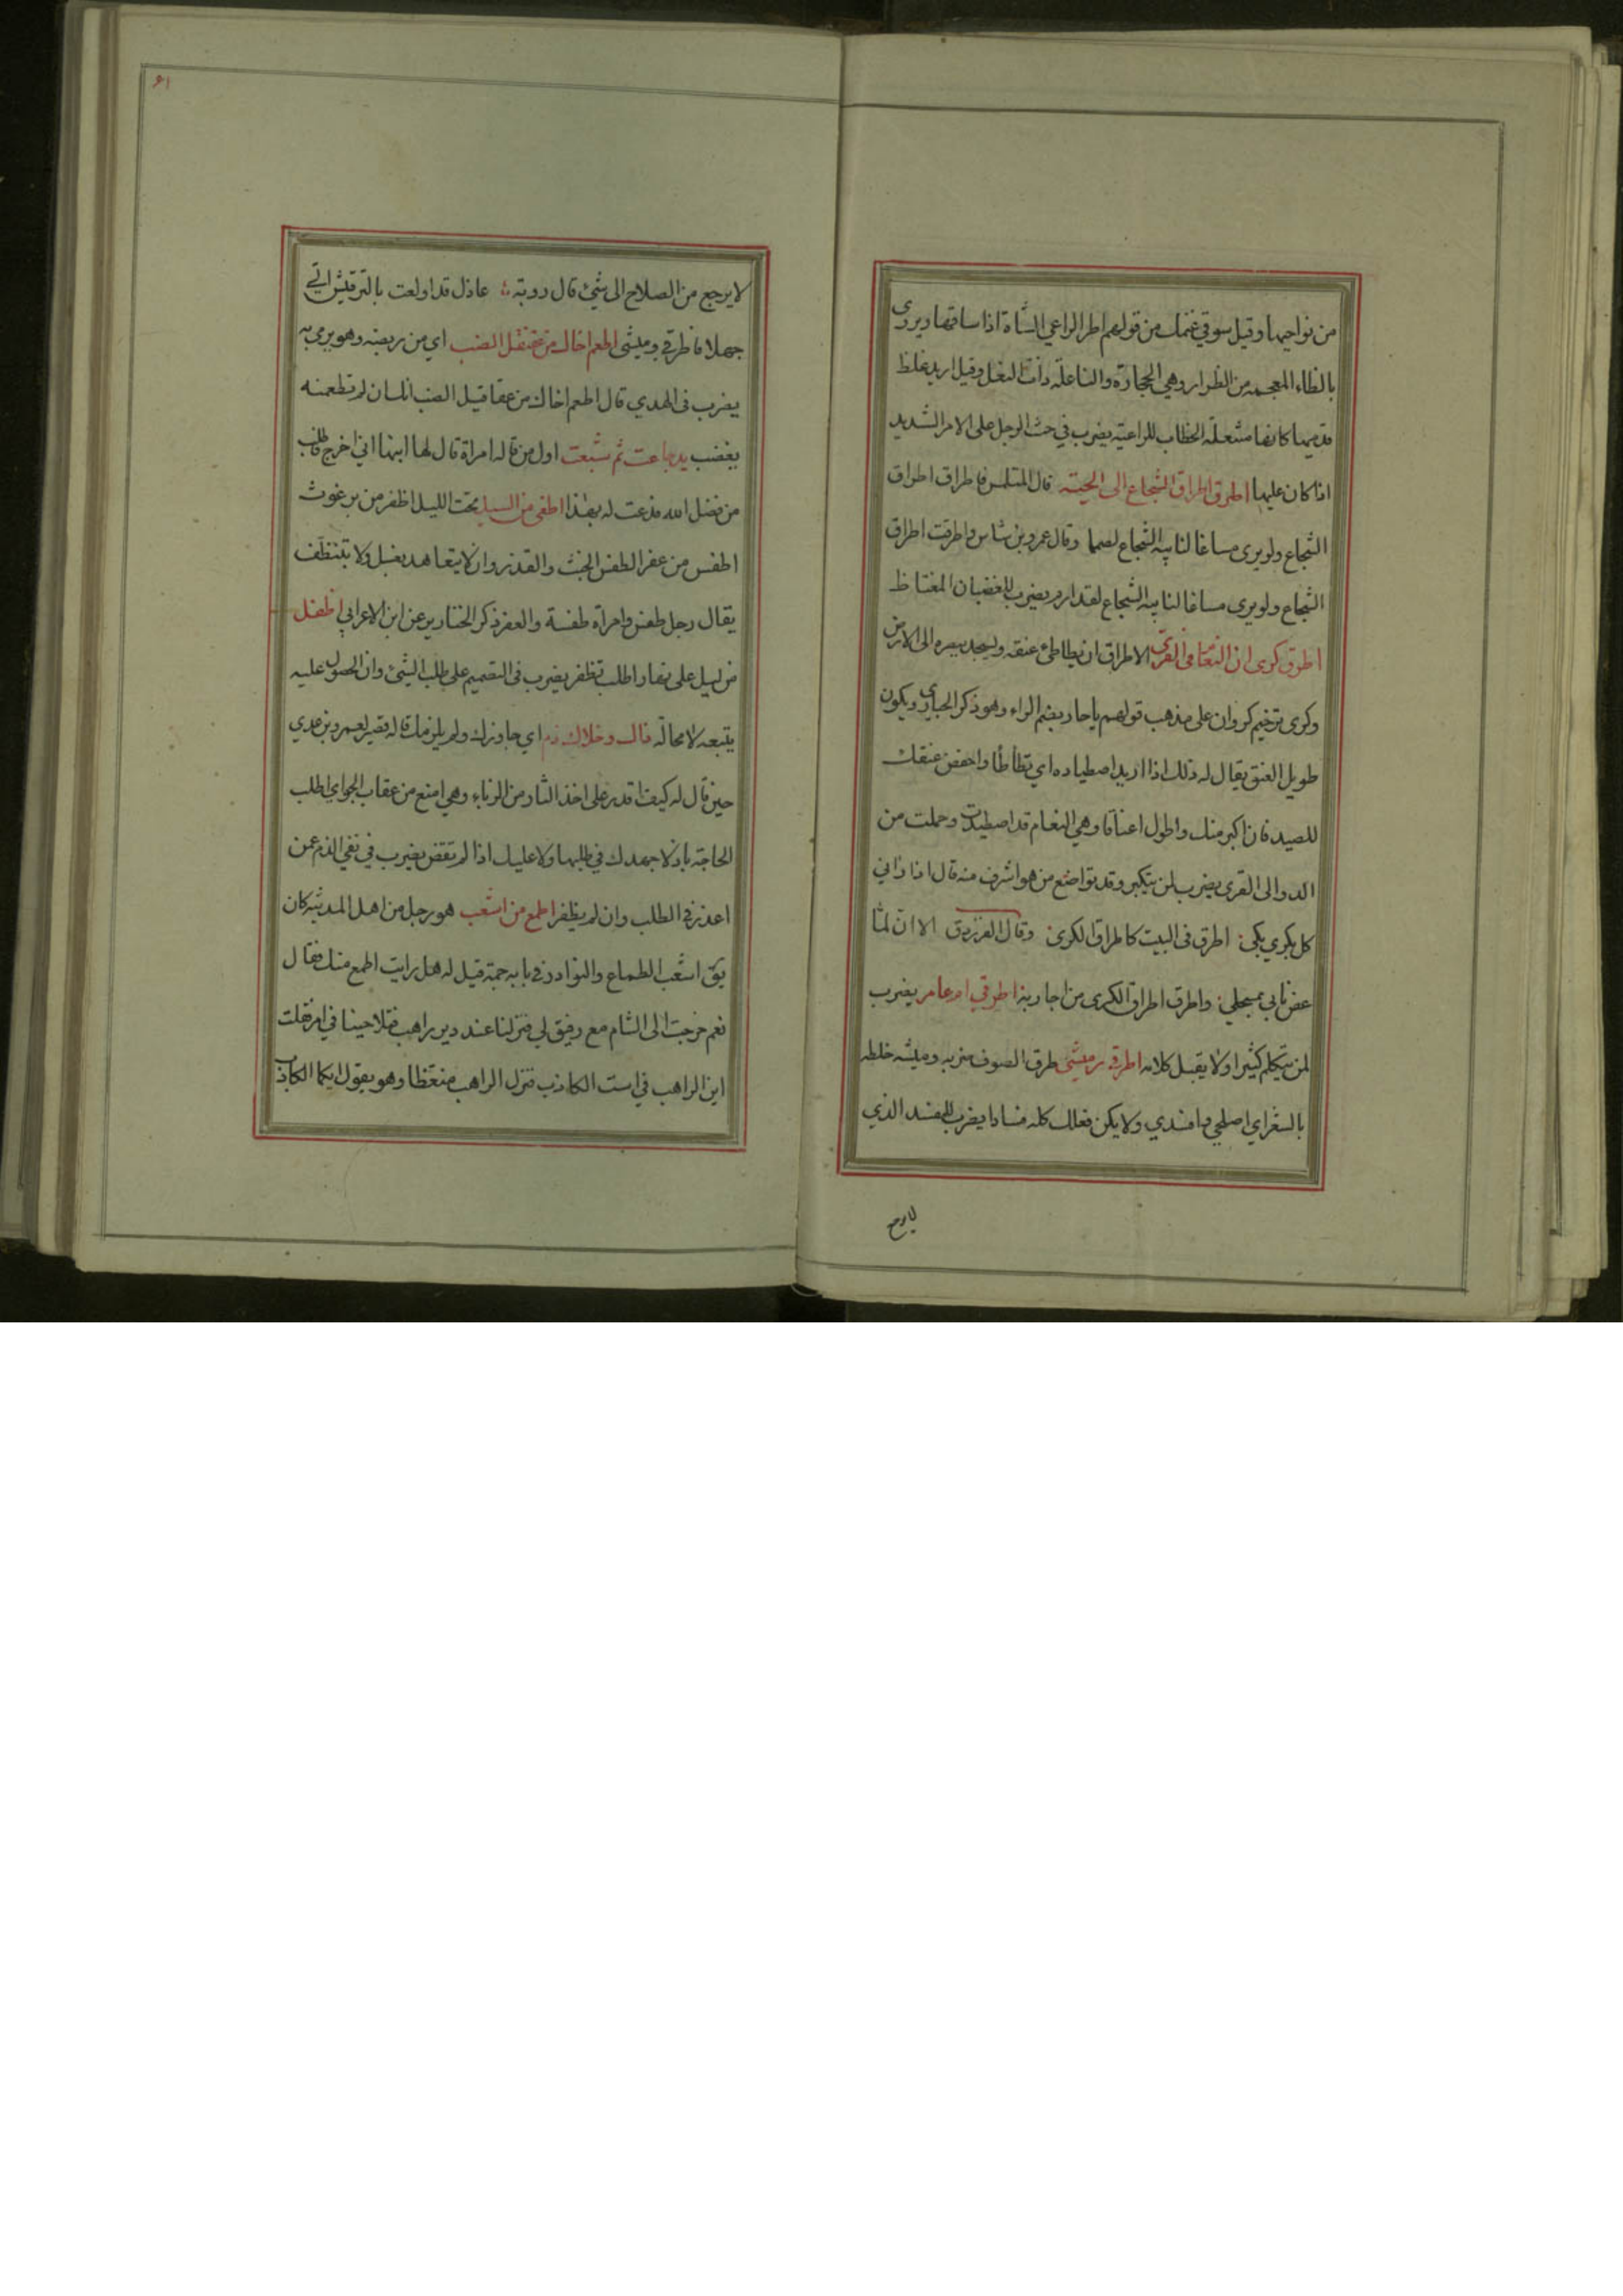 من نواحيها وقيل سوقي غنمك من قولهم اطر الراعي الشاة اذا ساقها ويروى
بالظاء المعجمه من الظرار وهي الحجارة والناعلة ذات النعل وقيل اريد غلظ
قدميها كانها منتعلة الخطاب للراعية يضرب في حث الرجل على الامر الشديد
اذا كان عليها اطرق اطراق الشجاع الى الحية قال المتلمس فاطراق اطراق
الشجاع ولو يرى مساغا لنابيه الشجاع لصمما وقال عمرو بن شاس واطرقت اطراق
الشجاع ولو يرى مساغا لنابيه الشجاع لقد ازم يضرب للغضبان المغتاظ
اطرق كرى ان النعام في القرى الاطراق ان يطاطئ عنقه ويسجد ببصره الى الارض
وكرى ترخيم كروان على مذهب قولهم يا حار بضم الراء وهو ذكر الحبارى ويكون
طويل العنق يقال له ذلك اذا اريد اصطياده اي تطاطا واخفض عنقك
للصيد فان اكبر منك واطول اعناقا وهي النعام قد اصطيدت وحملت من
الدو الى القرى يضرب لمن يتكبر وقد تواضع من هو اشرف منه قال اذا راني
كل بكري بكى اطرق في البيت كاطراق الكرى وقال الفرزدق الا ان لمثا
عض نابي بمسحلي واطرق اطراق الكرى من احاربه اطرقي ام عامر يضرب
لمن يتكلم كثيرا ولا يقبل كلامه اطرقي وميشي طرق الصوف ضربه وميشه خلطه
بالشعر اي اصلحي وافسدي ولا يكن فعلك كله فسادا يضرب للمفسد الذي
لا يرجع
٦١
لا يرجع من الصلاح الى شئ قال روبة عاذل قد اولعت بالترقيش الي
جهلا فاطرقي وميشى اطعم اخاك من عقنقل الضب اي من ربضه وهو يرمى به
يضرب في الهدي قال اطعم اخاك من عقاقيل الضب انك ان لم تطعمنه
يغضب يد جاعت ثم شبعت اول من قاله امراة قال لها ابنها اني اخرج فاطلب
من فضل الله فدعت له بهذا اطغى من السيل تحت الليل اظفر من برغوث
اطفس من عفر الطفس الخبث والقذر وان لا يتعاهد بغسل ولا بتنظف
يقال رجل طفس وامراة طفسة والعفر ذكر الخنازير عن ابن الاعرابي اطفل
من ليل على نهار اطلب تظفر يضرب في التصميم على طلب الشئ وان الحصول عليه
يتبعه لا محالة فاك وخلاك ذم اي جاوزك ولم يلزمك قاله قصير لعمرو بن عدي
حين قال له كيف اقدر على اخذ الثار من الزباء وهي امنع من عقاب الجو اي اطلب
الحاجة باذلا جهدك في طلبها ولا عليك اذا لم تقض يضرب في نفي الذم عمن
اعذر في الطلب وان لم يظفر اطمع من اشعب هو رجل من اهل المدينة كان
يق اشعب الطماع والنوادر في بابه جمة قيل له هل رايت اطمع منك فقال
نعم خرجت الى الشام مع رفيق لي فنزلنا عند دير راهب فتلاحينا في امر فقلت
اير الراهب في است الكاذب فنزل الراهب منعظا وهو يقول ايكما الكاذب